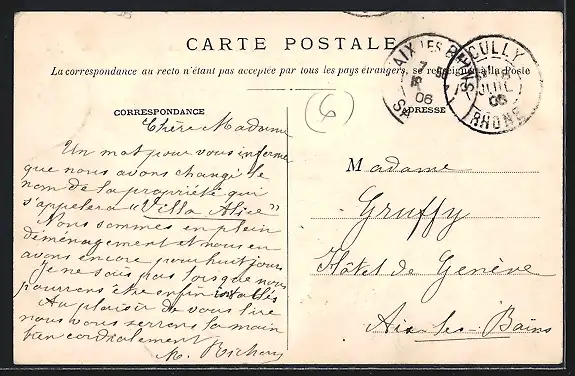 CARTE POSTALE
La correspondance au recto n'étant pas acceptée par tous les pays étrangers, se renseigner à la Poste
AIX LES BAINS
06
ECULLY
JUIL
06
RHONE
6
CORRESPONDANCE
ADRESSE
Chère Madame
Un mot pour vous informer
que nous avons changé le
nom de la propriété qui
s'appelera "Villa Alice"
Nous sommes en plein
déménagement et nous en
avons encore pour huit jours
Je ne sais pas lorsque nous
pourrons être enfin installés
Au plaisir de vous lire
nous vous serrons la main
bien cordialement
Madame
Gruffy
Hôtel de Genève
Aix-les-Bains